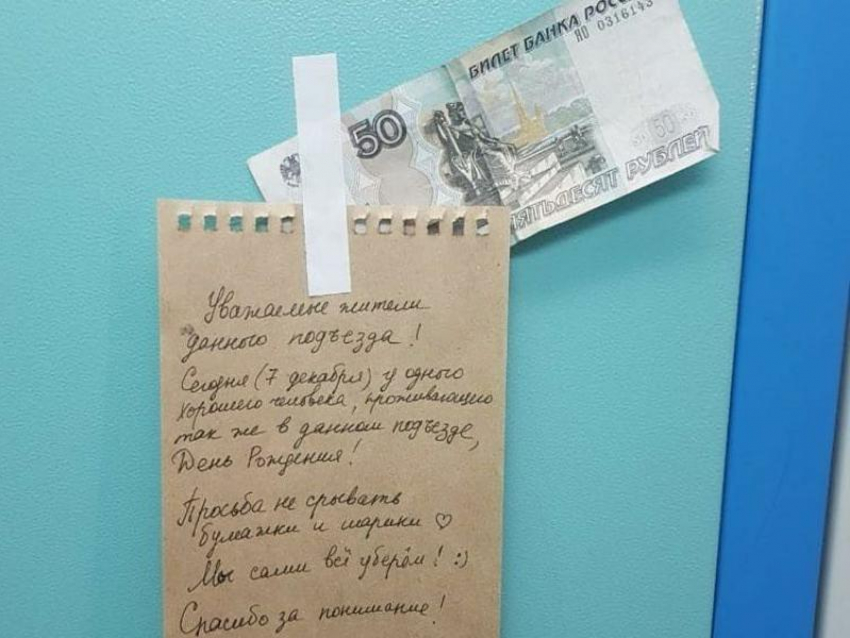 БИЛЕТ БАНКА РОССИИ
НО 0316143
50
50
ПЯТЬДЕСЯТ РУБЛЕЙ
Уважаемые жители
данного подъезда!
Сегодня (7 декабря) у одного
хорошего человека, проживающего
так же в данном подъезде,
День Рождения!
Просьба не срывать
бумажки и шарики ♡
Мы сами всё уберём! :)
Спасибо за понимание!